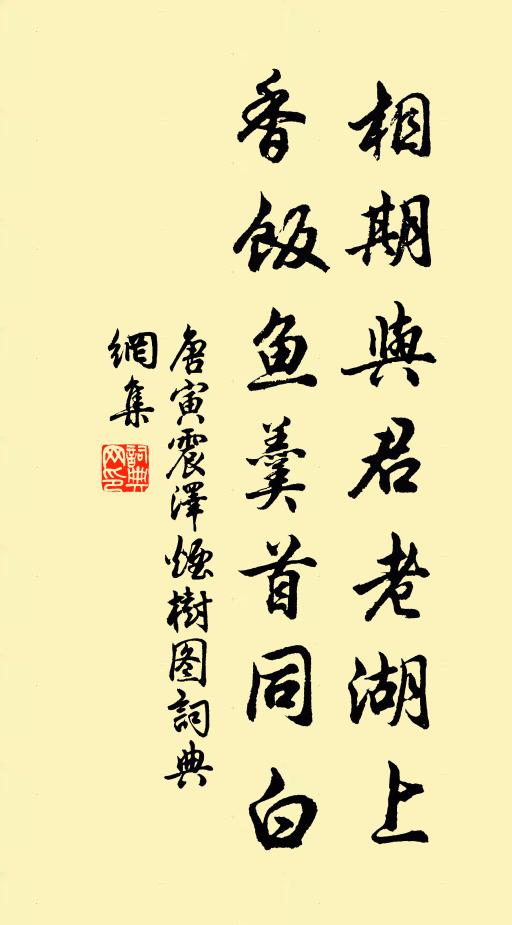 相期與君老湖上
香飯鱼羹首同白
唐寅震澤煙樹图詞典
網集
詞典
网印